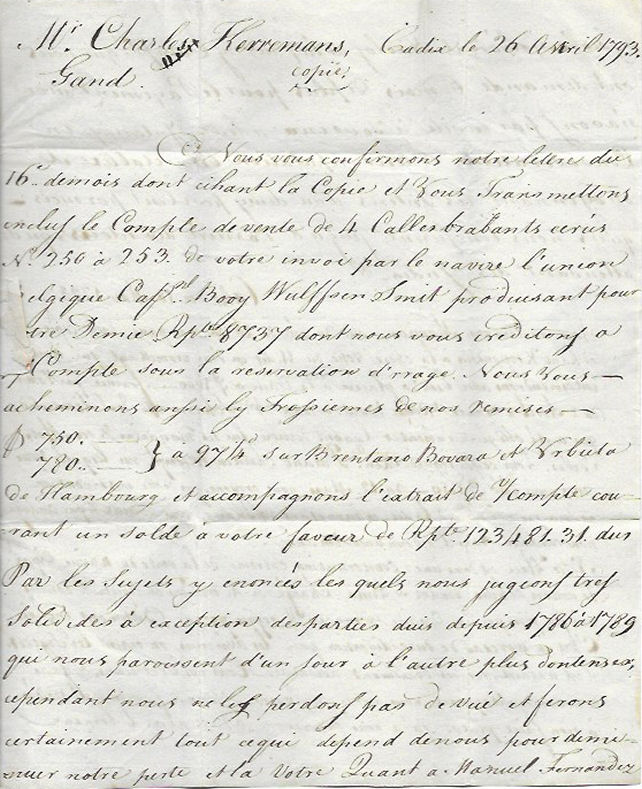 Mr. Charles Kerremans, Cadix le 26 Avril 1793.
Gand. copie,
Nous vous confirmons notre lettre du
16e. demois dont cihant la Copie et Vous Transmettons
inclus le Compte de vente de 4 Calles brabants ecrus
No. 250 à 253. de votre invoi par le navire l'union
elgique Capt. Booy Wulffsen Smit produisant pour
tre Demie Rpta. 8737 dont nous vous creditons a
Compte sous la reservation d'rrage. Nous Vous
acheminons aussi ly Trossiemes de nos remises
750.
780. } a 97¼d sur Brentano Bovara et Urbieta
de Hambourg et accompagnons l'extrait de v/compte cou-
rant un solde à votre faveur de Rpta. 123481.31. dus
Par les Sujets y enoncés les quels nous jugeons tres
Solidides à exception desparties duis depuis 1786 à 1789
qui nous paroissent d'un Jour à l'autre plus dontenses,
cependant nous neles perdons pas de vué et ferons
certainement tout cequi depend denous pour dimi-
nuer notre perte et la Votre Quant a Manuel Fernandez